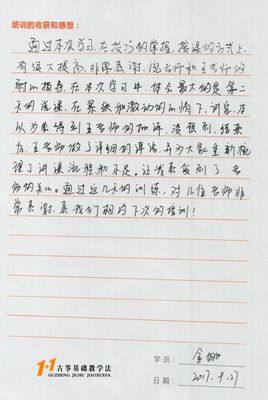 培训的收获和感想：
通过本次学习，在技巧的掌握，授课的方式上，
有很大提高，非常感谢，老师和王老师的
耐心指导，在本次学习中，体会最大的是第二
天的授课，在紧张和激动的心情下，讲完，本
以为要得到王老师的批评，没想到，结束
后，王老师做了详细的评语，并为大家重新梳
理了讲课流程和不足。让我感受到了，老
师的关心。通过这几天的训练，对几位老师非
常感谢，愿我们相约下次的培训！
1+1 古筝基础教学法
GUZHENG JICHU JIAOXUEFA
学员：金
日期：2017.9.27